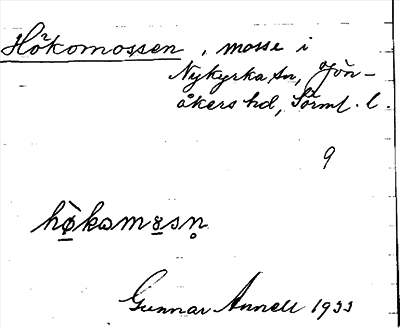 Hökomossen, mosse i
Nykyrka sn, Jön-
åkers hd, Sörml. l.
9
hò̱kɷmɤ̱sn̥
Gunnar Annell 1933